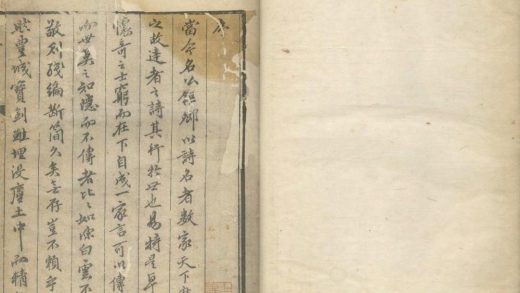 序
當今名公鉅卿以詩名者數家天下
之故達者之詩其行於世也易特是
懷奇之士窮而在下自成一家言可以傳
而世莫之知隱而不傳者比比如深白雲
敬列殘編斷簡久矣無存豈不賴乎
然豐城寶劍雖埋沒塵土中而精